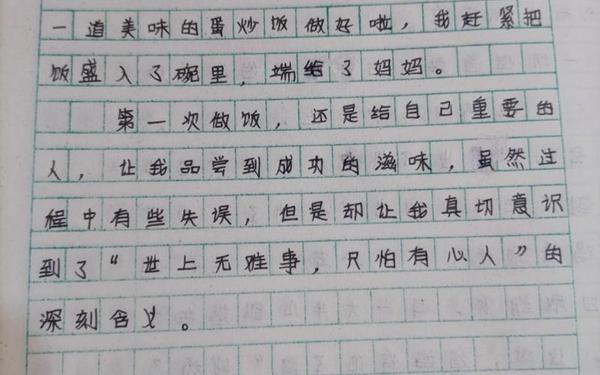 一道美味的蛋炒饭做好啦，我赶紧把
饭盛入了碗里，端给了妈妈。
第一次做饭，还是给自己重要的
人，让我品尝到成功的滋味，虽然过
程中有些失误，但是却让我真切意识
到了“世上无难事，只怕有心人”的
深刻含义。